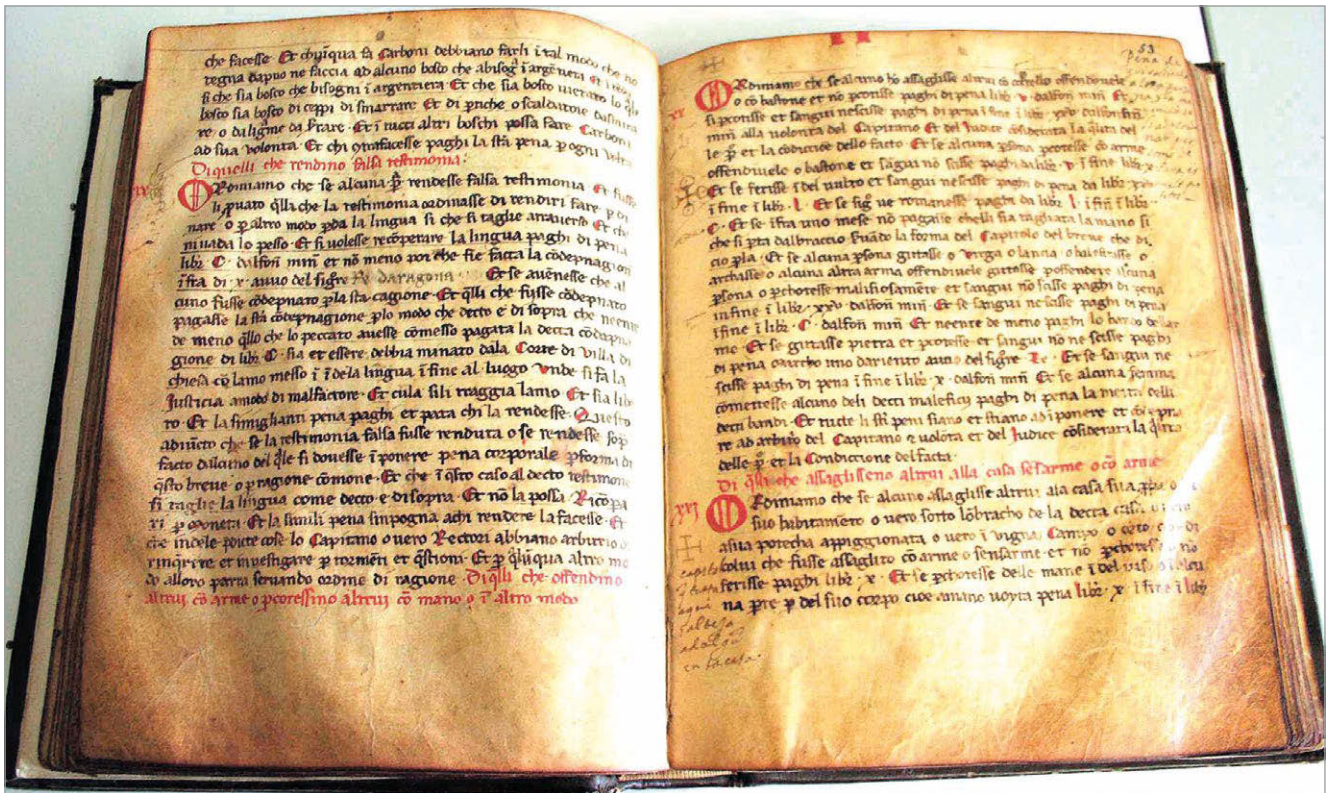 che facesse · Et chiũqua fa Carboni debbiano farli ĩ tal modo che no
regna dapuo ne faccia ad alcuno bosco che abisogĩ ĩ argẽtera et ĩ
si che sia bosco che bisogni ĩ argentiera · Et che sia bosco uietato lo q̃l
bosco sia bosco di ceppi di smarrare · Et di p̃nche o scaldatoie
re o da ligñme da frare · Et ĩ tucti altri boschi possa fare Carboni
ad sua volonta · Et chi ɔtrafacesse paghi la sta pena p ogni volta
Di quelli che rendino falsa testimonia ·
ORdiniamo che se alcuna p̃ rendesse falsa testimonia · Et fusse
li puato q̃lla che la testimonia ordinasse di rendiri fare p di
nare · o p altro modo pda la lingua si che si taglie atrauerso · Et che
ni uada lo pesso · Et si uolesse recõperare la lingua paghi di pena
libr · C · dalfoñ miñ et nõ meno poi che fie facta la cõdepnagion
ĩfra di · x · auuo del signre Re daragona · Et se auẽnesse che al
cuno fusse cõdepnato p la sta cagione · Et q̃lli che fusse cõdepnato
pagasse la sta cõdepnagione plo modo che decto e di sopra che neente
de meno q̃llo che lo peccato auesse cõmesso pagata la decta cõdepna
gione di libr · C · sia et essere debbia minato dala Corte di Villa di
chiesa cõ lamo messo ĩ ĩ dela lingua ĩ fine al luogo vnde si fa la
Justicia amodo di malfactore · Et cula sili traggia lamo · Et sia libe
ro · Et la simiglianti pena paghi et pata chi la rendesse · Questo
adiũcto che se la testimonia falsa fusse renduta o se rendesse sop̃
facto dalcuno del q̃le si douesse ĩ ponere pena corporale p forma di
q̃sto breue · o p ragione cõmone · Et che ĩ q̃sto caso al decto testimone
si taglie la lingua come decto e di sopra · Et nõ la possa Ricõpa
ri p moneta · Et la simili pena simpogna achi rendere la facesse · Et
che indele pdicte cose lo Capitano o uero Rectori abbiano arbitrio di
rinqrire et inuestigare p tormẽti et q̃stioni · Et p q̃luqua altro mo
do alloro parra seruando ordine di ragione · Di q̃lli che offendino
altrui cõ arme o pcotessino altrui cõ mano o ĩ altro modo
53
Pena de
ORdiniamo che se alcuno hõ assaglisse altrui cõ coltello offendiuele
o cõ bastone et nõ pcotisse paghi di pena libr · v · dalfoñ miñ · Et
si pcotisse et sangui nescisse paghi di pena ĩ fine ĩ libr · xxv dalfoñ
miñ alla volonta del Capitano · Et del Iudice cõsiderata la q̃lita del
le p̃ et la condicione dello facto · Et se alcuna psona pcotesse cõ arme
offendiuele o bastone et sãgui nõ scisse paghi da libr · v · ĩ fine libr · x
Et se ferisse ĩ del uulto et sangui nescisse paghi di pena da libr · xxv
ĩ fine ĩ libr · L · Et se sig̃ ue romanesse paghi da libr · L · ĩ fiñ ĩ libr ·
· C · Et se ĩfra uno mese nõ pagasse chelli sia tagliata la mano si
che si pta dalbraccio fuãdo la forma del Capitolo del breue che di
cio pla · Et se alcuna psona gittasse o verga o lancia o balestrasse o
archasse o alcuna altra arma offendiuele gittasse p offendere alcuna
psona o pchotesse malifiosamẽte et sangui nõ scisse paghi di pena
infine ĩ libr · xxv dalfoñ miñ · Et se sangui nescisse paghi di pena
ĩ fine ĩ libr · C · dalfoñ miñ · Et neente de meno paghi lo bando dellar
me · Et se gittasse pietra et pcotesse et sangui nõ ne scisse paghi
di pena marcho uno dariento auuo del signre Re · Et se sangui ne
scisse paghi di pena ĩ fine ĩ libr · x · dalfoñ miñ · Et se alcuna femina
comettesse alcuno deli decti maleficij paghi di pena la meita delli
decti bandi · Et tucte li sti peni siano et stiano ad ĩ ponere et
re ad arbitrio del Capitano a uolõta et del Iudice cõsiderata la q̃lita
delle p̃ et la Condictione del facta ·
Di q̃lli che assaglisseno altrui alla casa sẽsarme o cõ arme
XXI
ORdiniamo che se alcuno assaglisse altrui ala casa sua
suo habitamẽto o uero sotto lõbracho de la decta casa o uero
asua potecha appiggionata o uero ĩ vigna Campo o orto
colui che fusse assaglito cõ arme o sensarme · et nõ pchotesse o nõ
ferisse paghi libr · x · Et se pchotesse delle mane ĩ del uiso o ĩ alcu
na pte p̃ del suo corpo cioe amano uoyta pena libr · x · ĩ fine ĩ libr